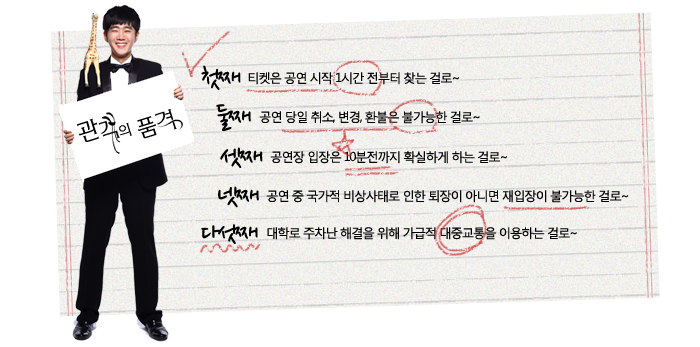 관객의 품격
첫째 티켓은 공연 시작 1시간 전부터 찾는 걸로~
둘째 공연 당일 취소, 변경, 환불은 불가능한 걸로~
셋째 공연장 입장은 10분전까지 확실하게 하는 걸로~
넷째 공연 중 국가적 비상사태로 인한 퇴장이 아니면 재입장이 불가능한 걸로~
다섯째 대학로 주차난 해결을 위해 가급적 대중교통을 이용하는 걸로~